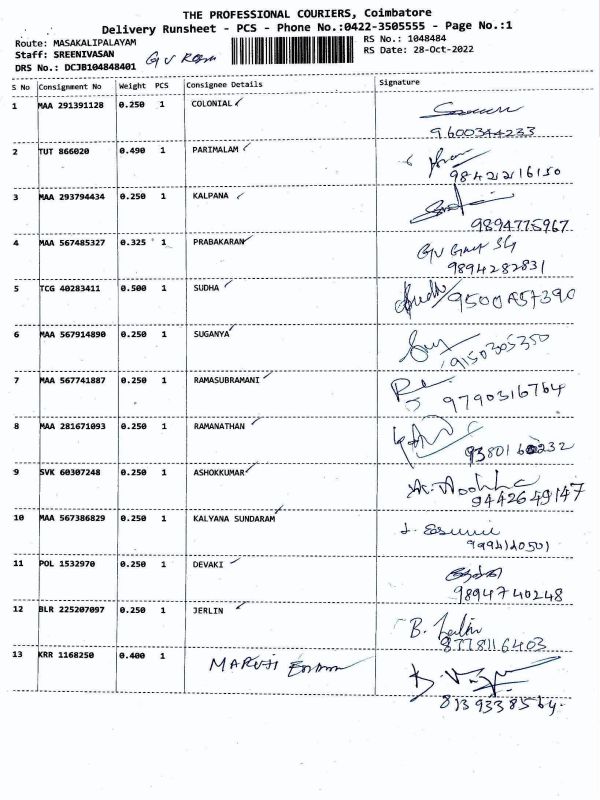 THE PROFESSIONAL COURIERS, Coimbatore
Delivery Runsheet - PCS - Phone No.:0422-3505555 - Page No.:1
Route: MASAKALIPALAYAM
RS No.: 1048484
Staff: SREENIVASAN
RS Date: 28-Oct-2022
DRS No.: DCJB104848401
S No Consignment No Weight PCS Consignee Details Signature
1 MAA 291391128 0.250 1 COLONIAL
9600344233
2 TUT 866020 0.490 1 PARIMALAM
9842216150
3 MAA 293794434 0.250 1 KALPANA
9894775967
4 MAA 567485327 0.325 1 PRABAKARAN
9894282831
5 TCG 40283411 0.500 1 SUDHA
6 MAA 567914890 0.250 1 SUGANYA
9150305350
7 MAA 567741887 0.250 1 RAMASUBRAMANI
9790316764
8 MAA 281671093 0.250 1 RAMANATHAN
9 SVK 60307248 0.250 1 ASHOKKUMAR
9442649147
10 MAA 567386829 0.250 1 KALYANA SUNDARAM
11 POL 1532970 0.250 1 DEVAKI
9894740248
12 BLR 225207097 0.250 1 JERLIN
B. Jerlin
8778116403
13 KRR 1168250 0.400 1 MARUJI
8139338564.